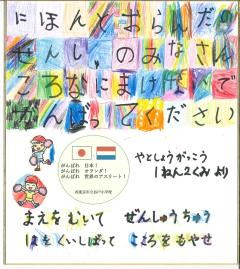 にほんとおらんだの
せんしゅのみなさん
ころなにまけないで
がんばってください
がんばれ 日本！
がんばれ オランダ！
がんばれ 世界のアスリート！
やとしょうがっこう
1ねん2くみより
まえをむいて ぜんしゅうちゅう
はをくいしばって こころをもやせ